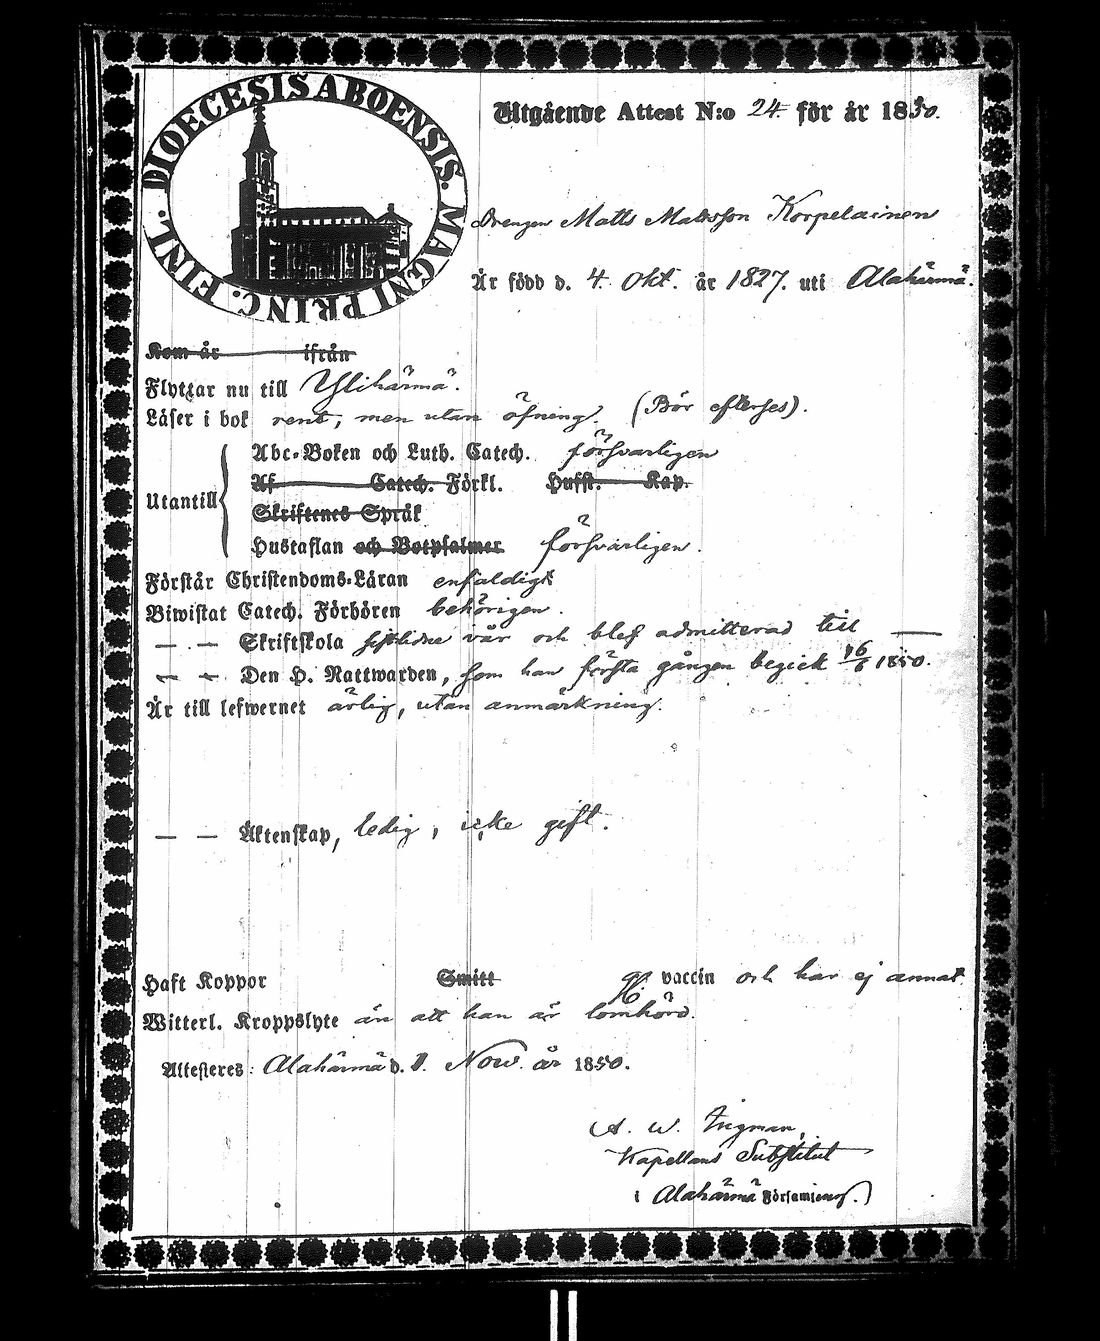 DIOECESIS ABOENSIS. MAGNI PRINC. FINL.
Utgående Attest N:o 24. för år 1850.
Drengen Matts Mattsson Korpelainen
Är född d. 4. Okt. år 1827. uti Alahärmä.
Kom år ifrån
Flyttar nu till Ylihärmä.
Läser i bok rent, men utan öfning. (Bör efterses).
Utantill
Abc-Boken och Luth. Catech. försvarligen
Af Catech. Förkl. Hufst. Kap.
Skriftenes Språk
Hustaflan och Botpsalmer försvarligen.
Förstår Christendoms-Läran enfaldigt
Biwistat Catech. Förhören behörigen.
— . — Skriftskola sistlidne vår och blef admitterad till —
— — Den H. Nattwarden, som han första gången begick 16/6 1850.
Är till lefwernet ärlig, utan anmärkning.
— — Äktenskap, ledig, icke gift.
Haft Koppor Smitt vaccin och har ej annat
Witterl. Kroppslyte än att han är lomhörd.
Attesteres: Alahärmä d. 1. Nov. år 1850.
A. W. Ingman,
Kapellans Substitut
i Alahärmä Församling.)